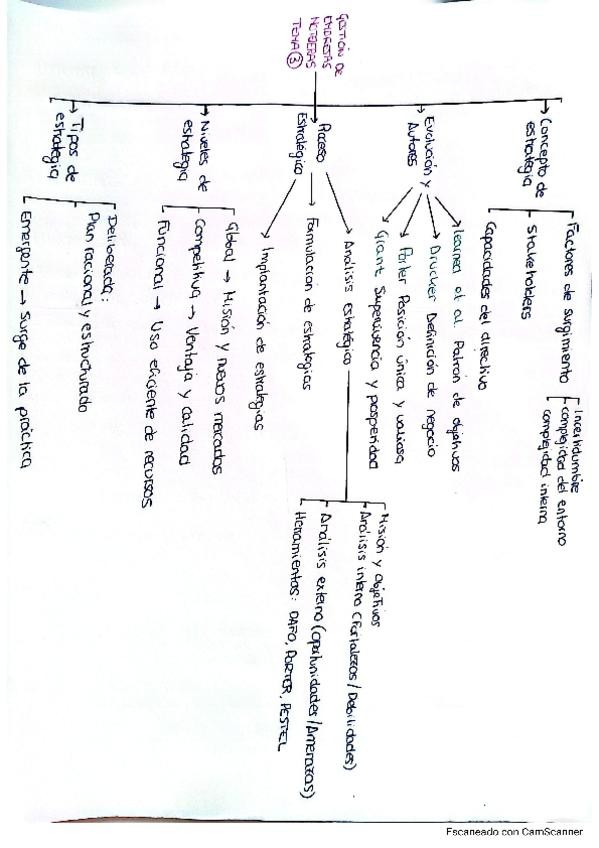 GESTIÓN DE
EMPRESAS
HOTELERAS
TEMA 3
Concepto de
estrategia
Factores de surgimiento
Incertidumbre
complejidad del entorno
complejidad interna
Stakeholders
Capacidades del directivo
Evolución y
Autores
Learned et al Patrón de objetivos
Drucker Definición de negocio
Porter Posición única y valiosa
Grant Supervivencia y prosperidad
Proceso
Estratégico
Análisis estratégico
Misión y objetivos
Análisis interno (Fortalezas / Debilidades)
Análisis externo (oportunidades / Amenazas)
Herramientas: DAFO, PORTER, PESTEL
Formulación de estrategias
Implantación de estrategias
Niveles de
estrategia
Global → Misión y nuevos mercados
Competitiva → Ventaja y calidad
Funcional → Uso eficiente de recursos
Tipos de
estrategia
Deliberada:
Plan racional y estructurado
Emergente → Surge de la práctica
Escaneado con CamScanner